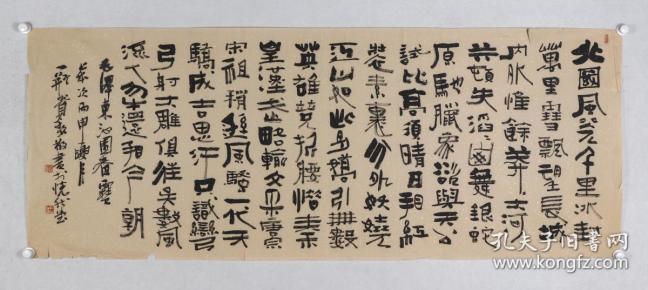 北國風光千里冰封
萬里雪飄望長城
内外惟餘莽莽大河
上下頓失滔滔山舞銀蛇
原馳臘象欲與天公
試比高須晴日看紅
裝素裹分外妖嬈
江山如此多嬌引無數
英雄競折腰惜秦
皇漢武略輸文采唐宗
宋祖稍遜風騷一代天
驕成吉思汗只識彎
弓射大雕俱往矣數風
流人物還看今朝
毛澤東沁園春雪
歲次丙申
孔夫子旧书网
kongfz.com